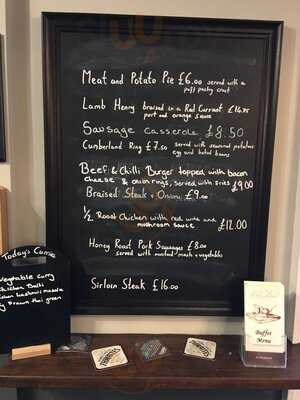 Meat and Potato Pie £6.00 served with a
puff pastry crust
Lamb Henry braised in a Red Currant £14.95
port and orange sauce
Sausage casserole £8.50
Cumberland Ring £7.50 served with seasoned potatoes
egg and baked beans
Beef & Chilli Burger topped with bacon
cheese & onion rings, served with fries £9.00
Braised Steak & Onions £9.00
1/2 Roast Chicken with red wine and
mushroom sauce £12.00
Honey Roast Pork Sausages £8.00
served with mustard mash & vegetables
Sirloin Steak £16.00
Today's Curries
Vegetable curry
Chicken
masala
Prawn thai green
Buffet
Menu